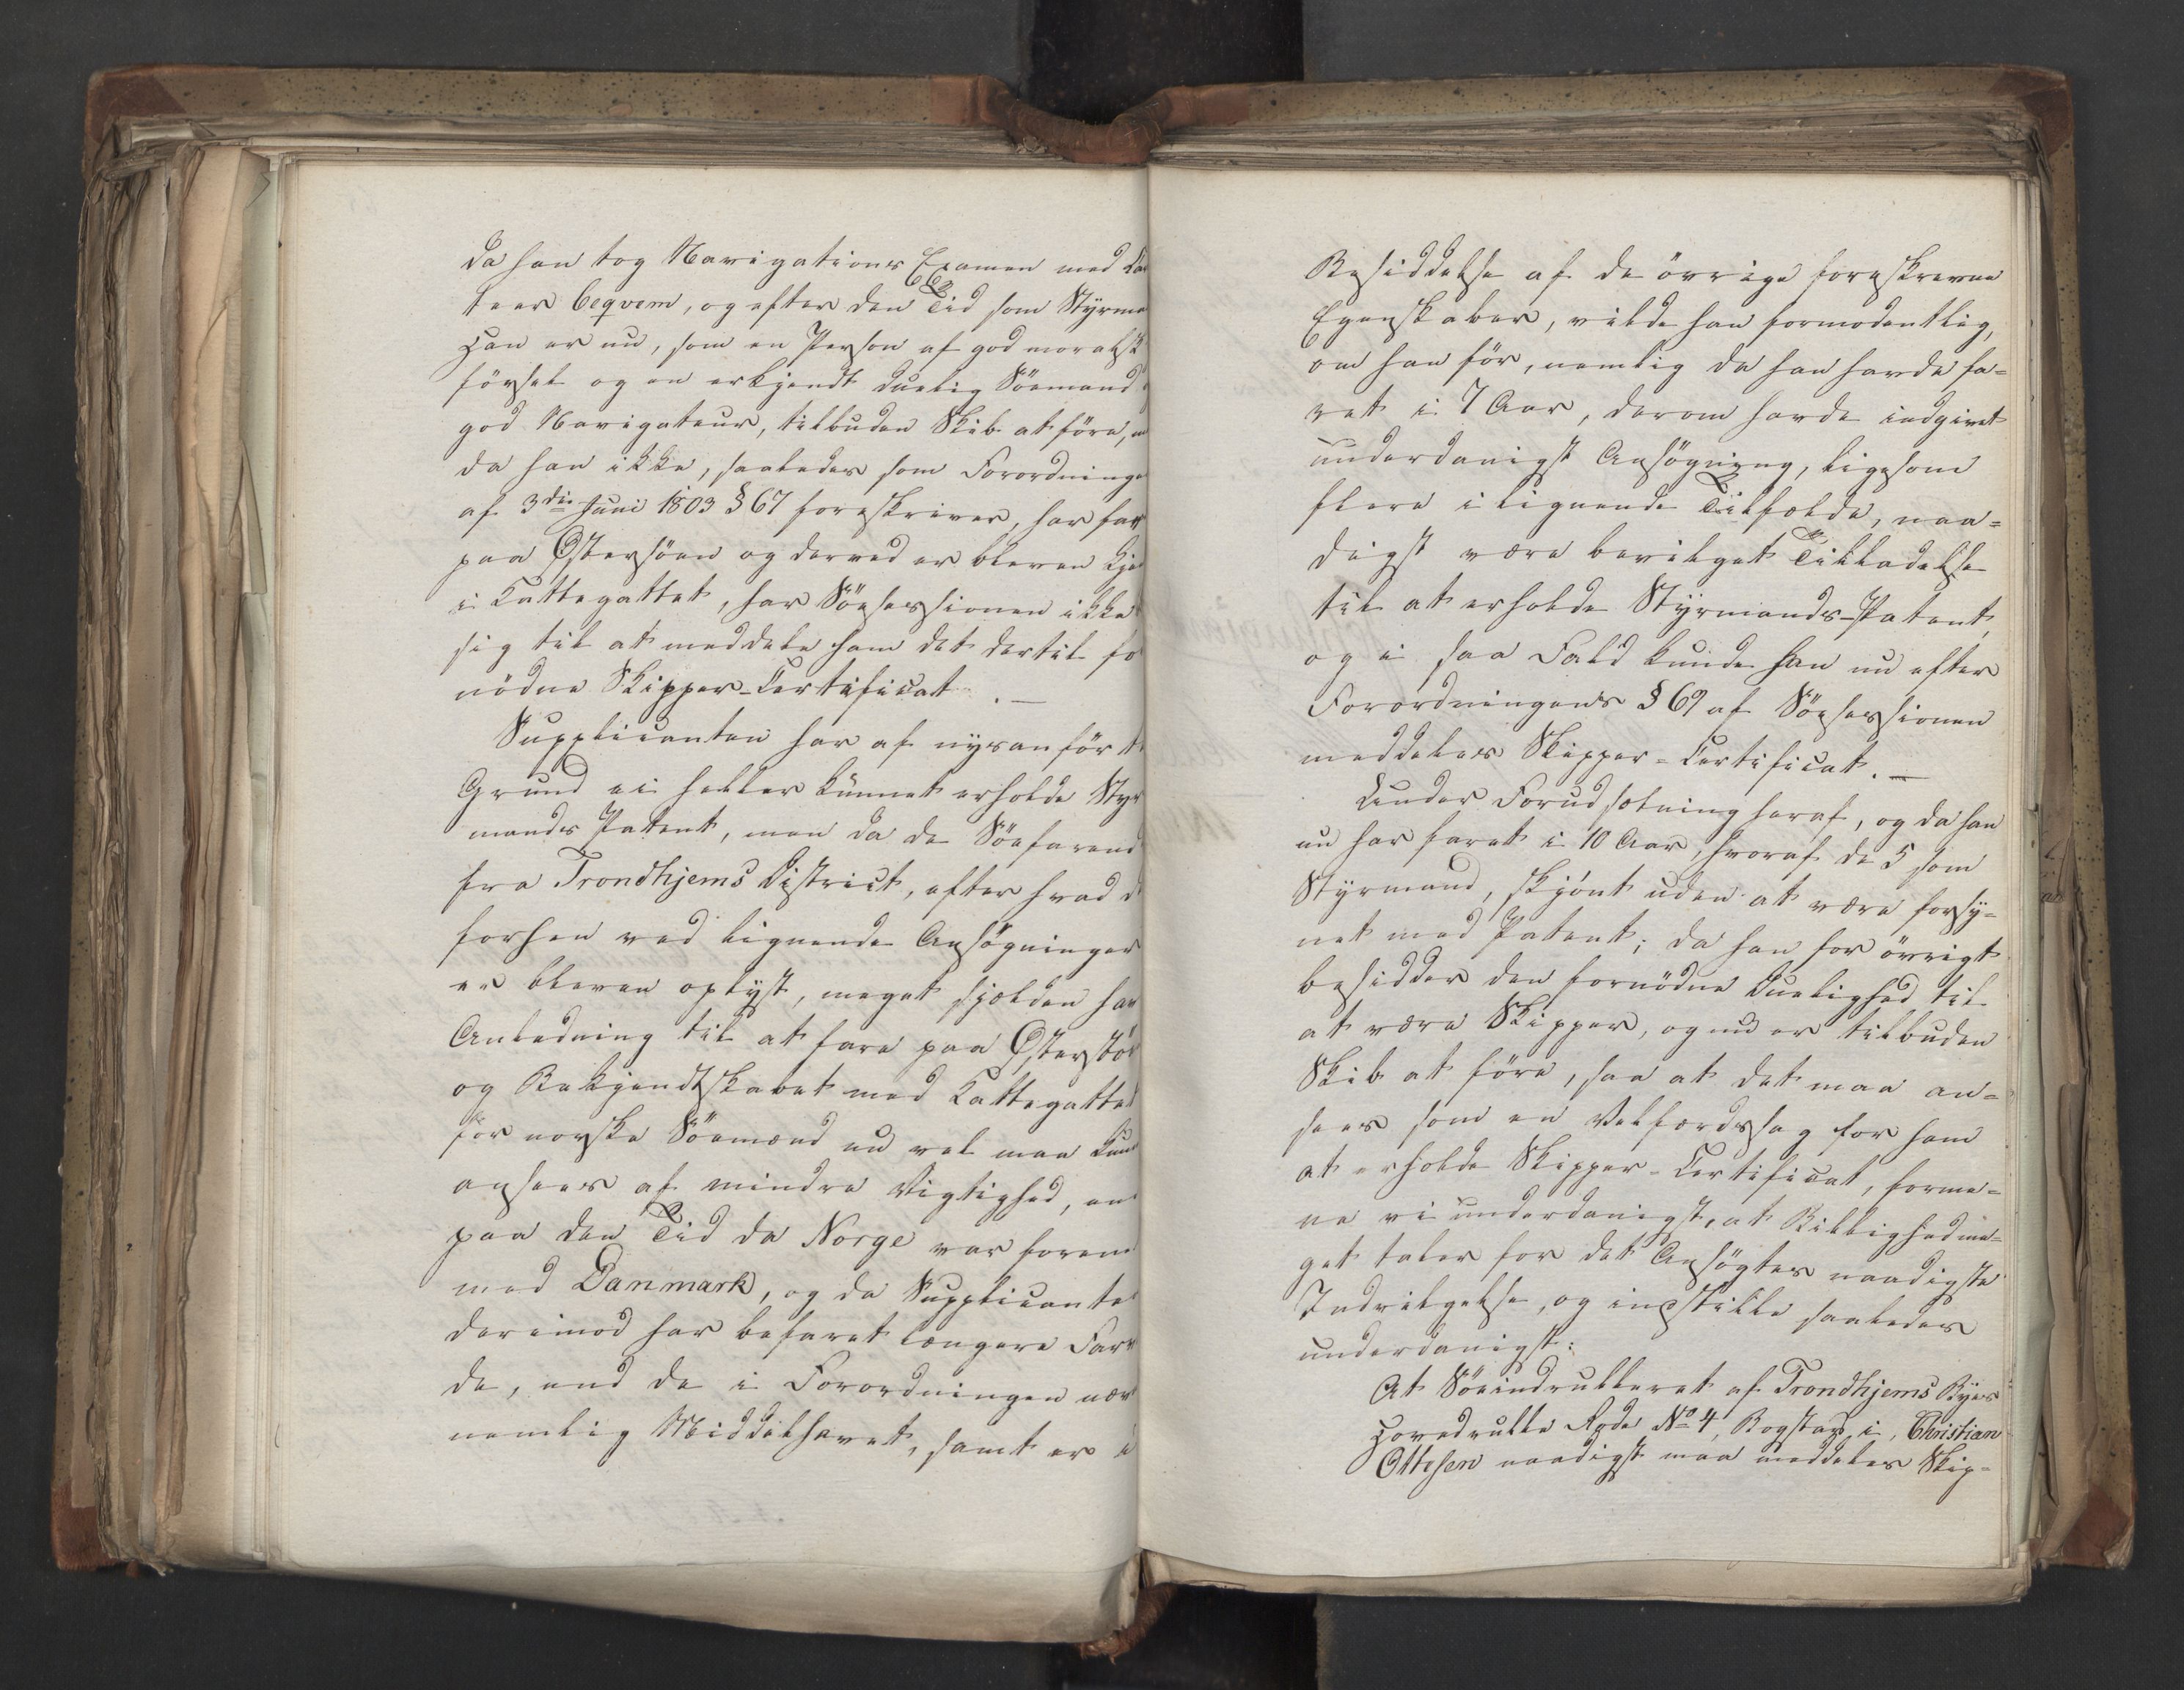 da han tog Navigations Examen med Ca¬
te er beqvem, og efter den Tid som Styrma
Han er nu, som en Person af god moralsk
försel og en erkjendt duelig Söemand
god Navigateur, tilbuden Skib at före, m
da han ikke, saaledes som Forordninge
af 3die Juni 1803 § 67 foreskriver, har far
paa Østersöen og derved er bleven kje
i Cattegattet, har Söesessionen ikke
sig til at meddele ham det dertil fo
nödne Skipper-Certificat. —
Supplicanten har af nysanfört
Grund ei heller kunnet erholde Styr
mands Patent, men da de Söefarend
fra Trondhjems District, efter hvad d
forhen ved lignende Ansögninger
er bleven oplyst, meget sjælden har
Anledning til at fare paa Østersö
og Bekjendtskabet med Cattegattet
for norske Söemænd nu vel maa kun
ansees af mindre Vigtighed, en
paa den Tid da Norge var foren
med Danmark, og da Supplicante
derimod har befaret længere Farv
de, end de i Forordningen næv
nemlig Middelhavet, samt er i
Besiddelse af de övrige foreskrevne
Egenskaber, vilde han formodentlig,
om han för, nemlig da han havde fa-
ret i 7 Aar, derom havde indgivet
underdanigst Ansögning, ligesom
flere i lignende Tilfælde, naa-
digst være bevilget Tilladelse
til at erholde Styrmands-Patent,
og i saa Fald kunde han nu efter
Forordningens § 69 af Söesessionen
meddeles Skipper-Certificat. —
Under Forudsætning heraf, og da han
nu har faret i 10 Aar, hvoraf de 5 som
Styrmand, skjönt uden at være forsy-
net med Patent; da han for övrigt
besidder den fornödne Duelighed til
at være Skipper, og nu er tilbuden
Skib at före, saa at det maa an-
sees som en Velfærdssag for ham
at erholde Skipper-Certificat, forme-
ne vi underdanigst, at Billighed me-
get taler for det Ansögtes naadigste
Indvilgelse, og indstille saaledes
underdanigst:
At Söeindrulleret af Trondhjems Byes
Hovedrulle Rode No 4, Bogstav i, Christian
Ottesen naadigst maa meddeles Skip-